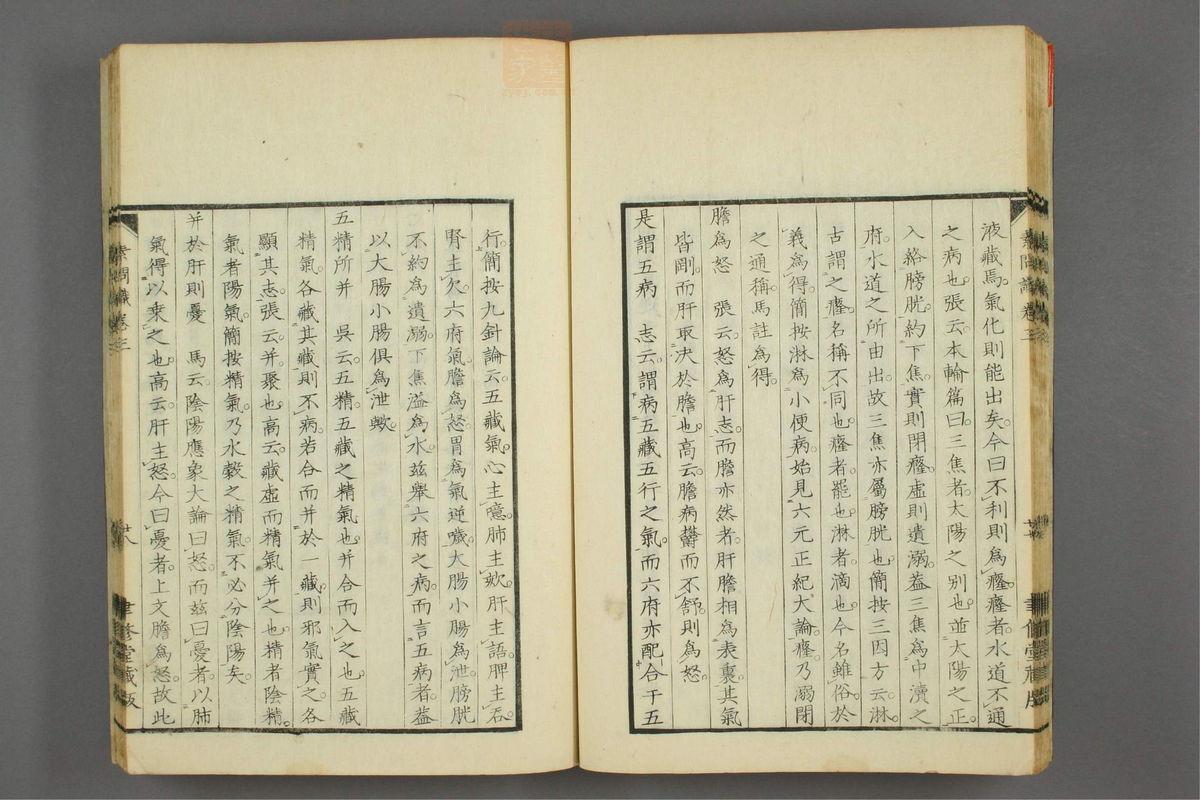 液藏焉氣化則能出矣今曰不利則爲癃癃者水道不通
之病也張云本輸篇曰三焦者太陽之別也並太陽之正
入絡膀胱約下焦實則閉癃虛則遺溺蓋三焦爲中瀆之
府水道之所由出故三焦亦屬膀胱也簡按三因方云淋
古謂之癃名稱不同也癃者罷也淋者滴也今名雖俗於
義爲得簡按淋爲小便病始見六元正紀大論癃乃溺閉
之通稱馬註爲得
膽爲怒 張云怒爲肝志而膽亦然者肝膽相爲表裏其氣
皆剛而肝取決於膽也高云膽病鬱而不舒則爲怒
是謂五病 志云謂病五藏五行之氣而六府亦配合于五
素問識卷三
聿修堂藏版
行簡按九針論云五藏氣心主噫肺主欬肝主語脾主吞
腎主欠六府氣膽爲怒胃爲氣逆噦大腸小腸爲泄膀胱
不約爲遺溺下焦溢爲水茲舉六府之病而言五病者蓋
以大腸小腸俱爲泄歟
五精所并 吳云五精五藏之精氣也并合而入之也五藏
精氣各藏其藏則不病若合而并於一藏則邪氣實之各
顯其志張云并聚也高云藏虛而精氣并之也精者陰精
氣者陽氣簡按精氣乃水穀之精氣不必分陰陽矣
并於肝則憂 馬云陰陽應象大論曰怒而茲曰憂者以肺
氣得以乘之也高云肝主怒今曰憂者上文膽爲怒故此
素問識卷三
廿八
聿修堂藏版